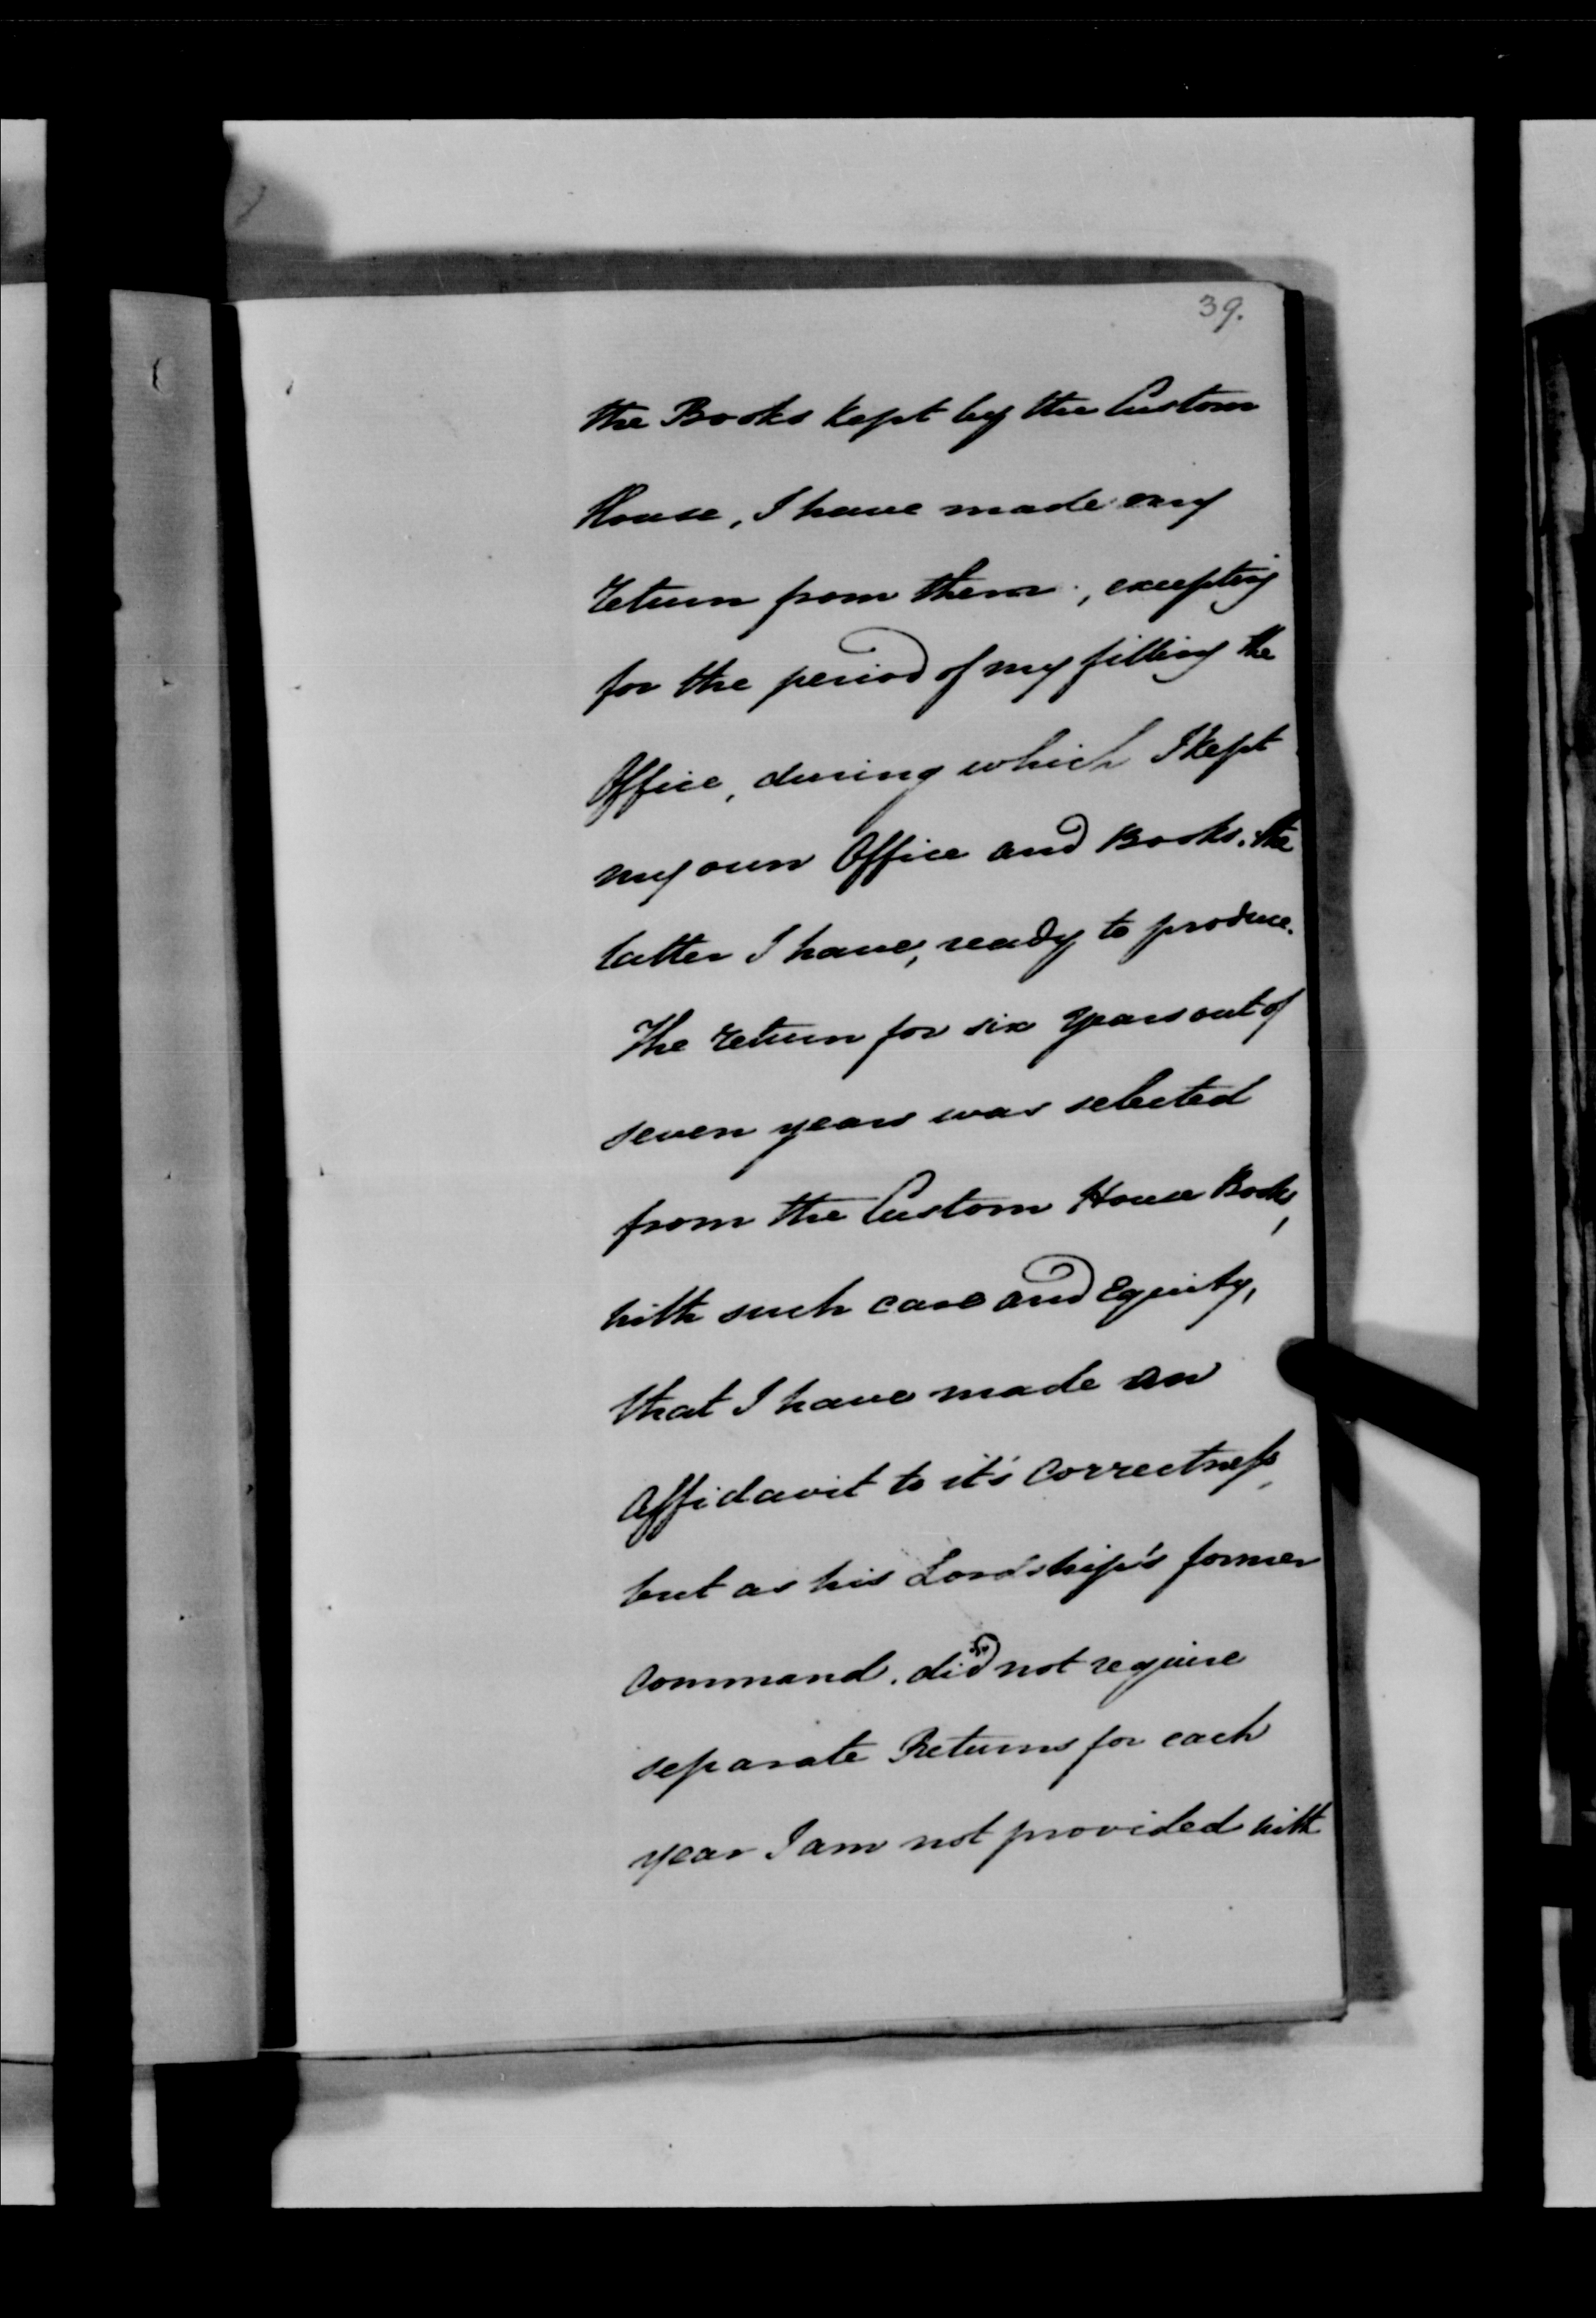 39.
the Books kept by the Custom
House, I have made my
return from them, excepting
for the period of my filling the
Office, during which I kept
my own Office and Books. the
latter I have, ready to produce.
The return for six years out of
seven years was selected
from the Custom House Books,
with such care and Equity,
that I have made an
Affidavit to it's correctness,
but as his Lordship's former
command. did not require
separate Returns for each
year I am not provided with